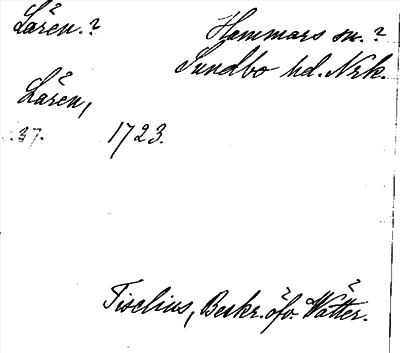 Låren.?
Hammars sn.?
Sundbo hd. Nrk.
Låren,
:37.
1723.
Tiselius, Beskr. öfv. Wätter.